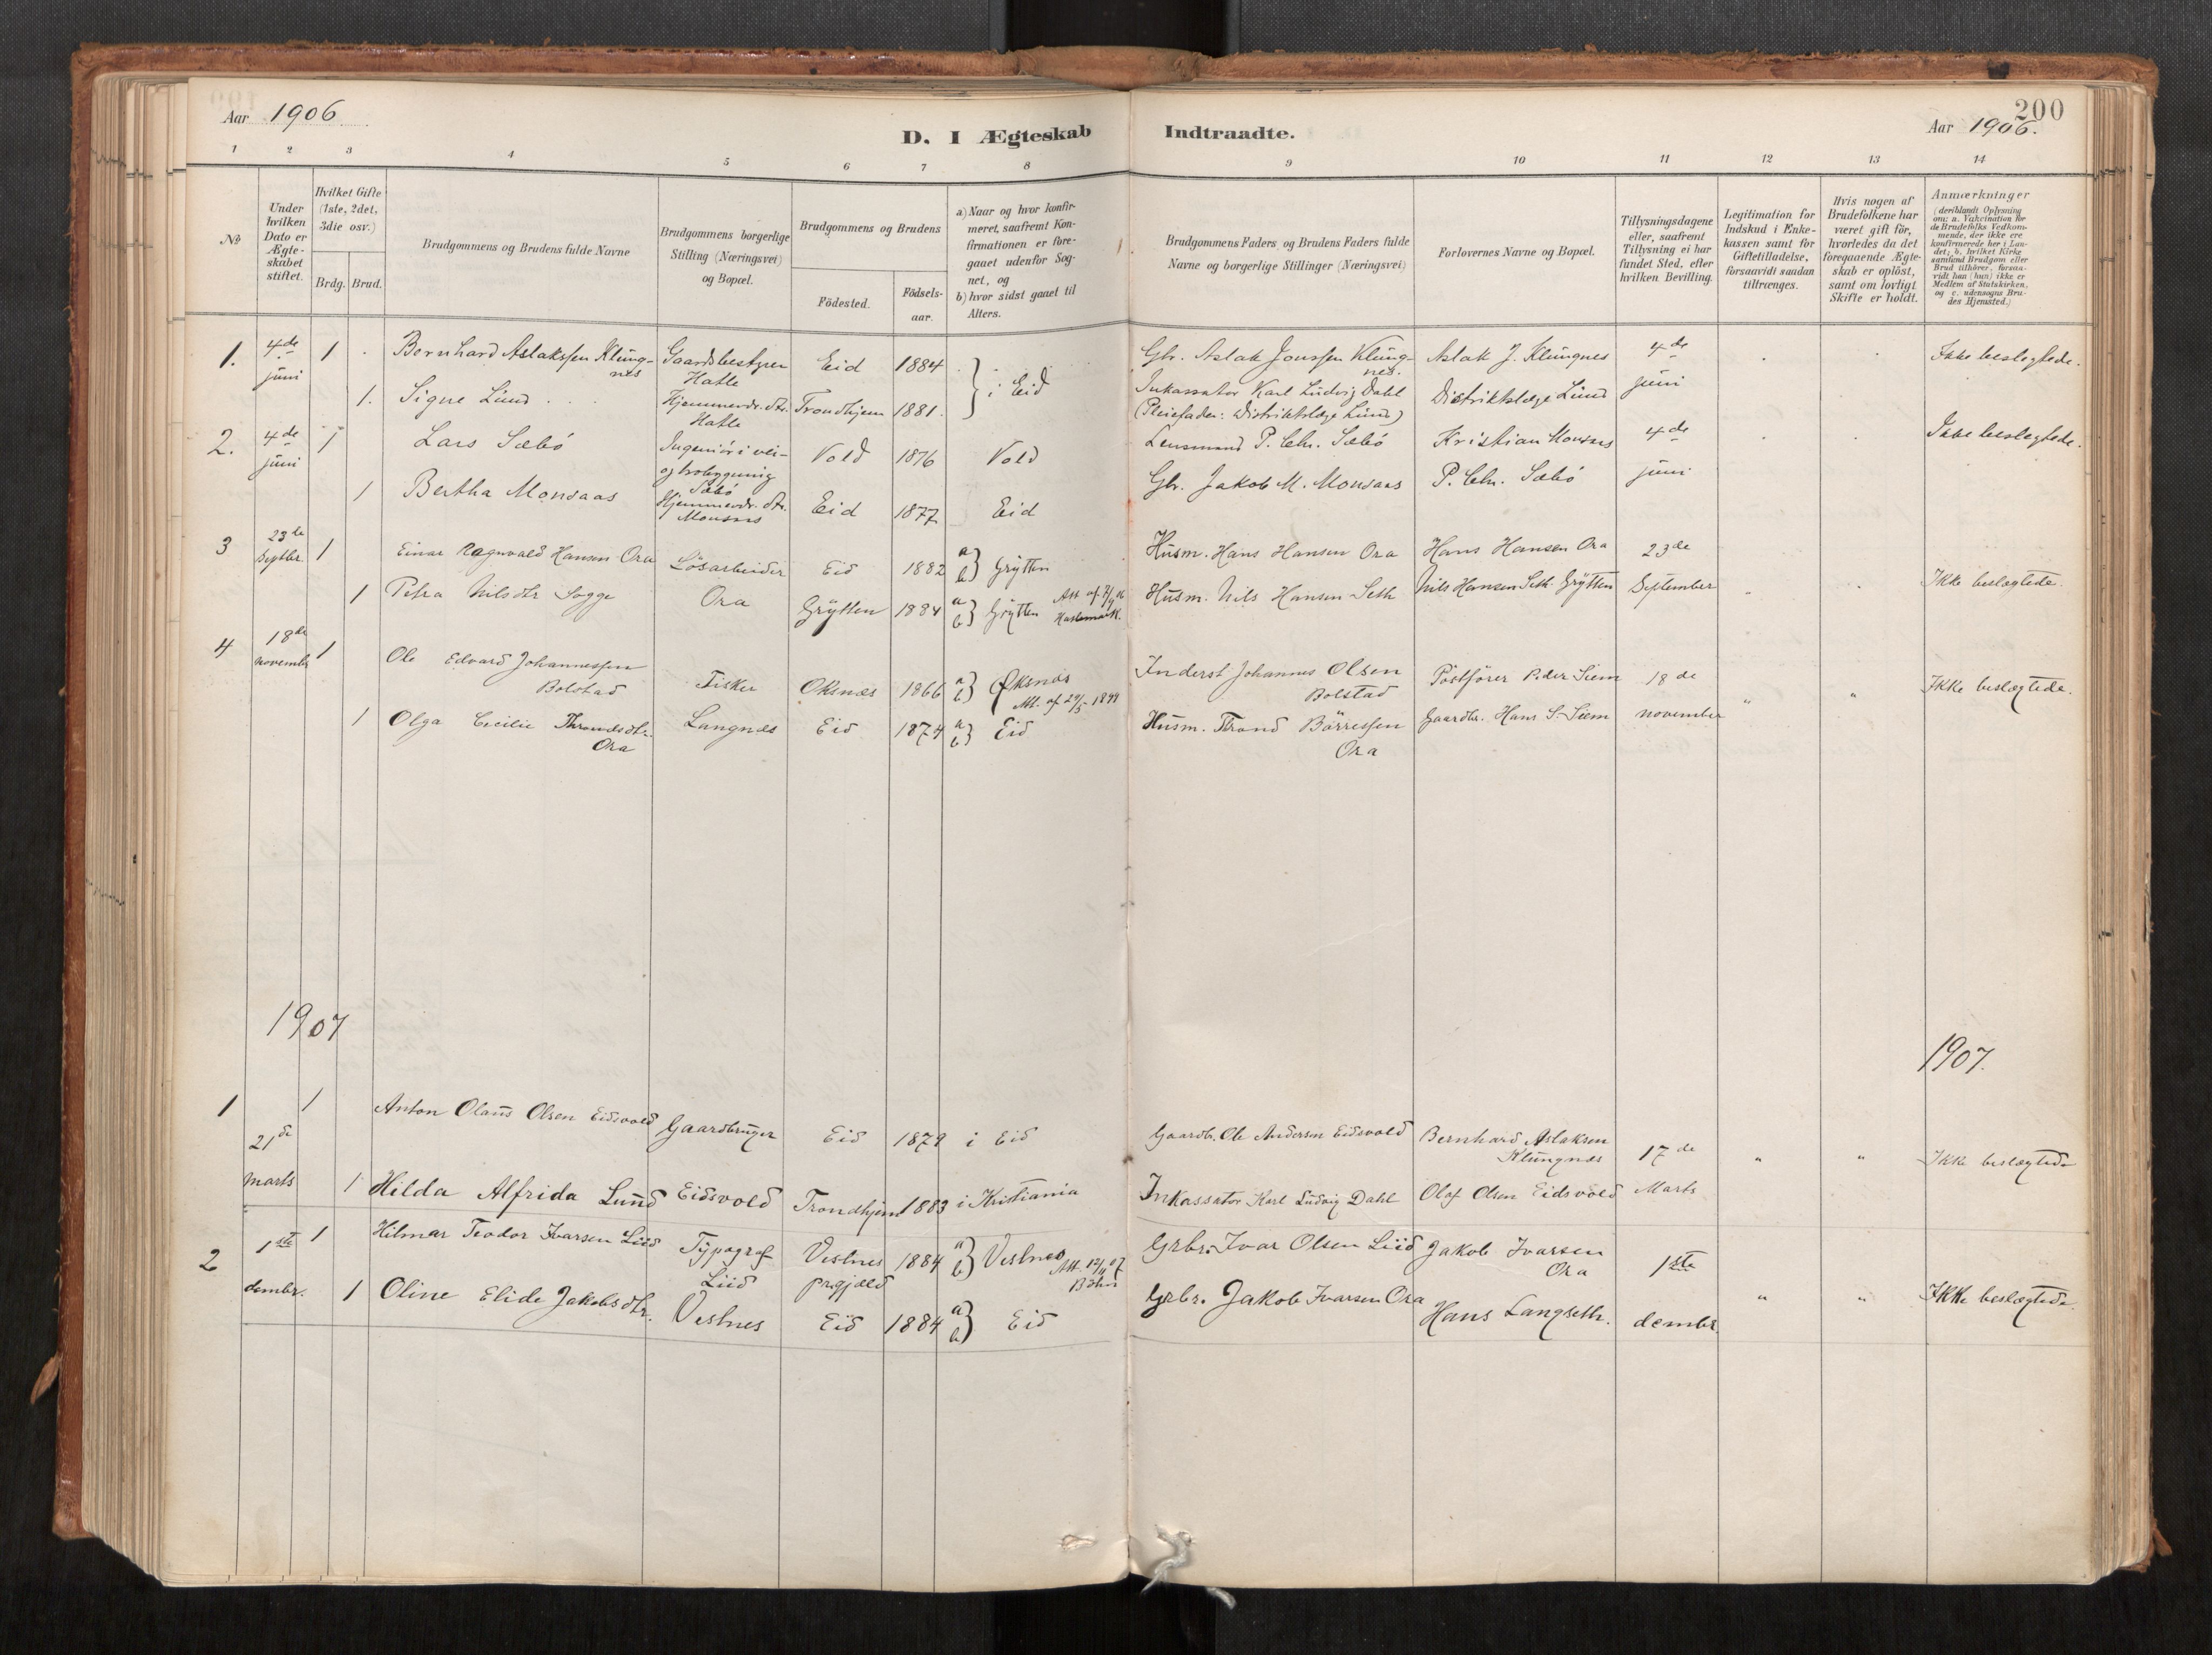 Aar 1906
D. I Ægteskab Indtraadte.
200
Aar 1906.
1 2 3 4 5 6 7 8 9 10 11 12 13 14
No
Under hvilken Dato er Ægteskabet stiftet.
Hvilket Gifte (1ste, 2det, 3die osv.)
Brdg. Brud.
Brudgommens og Brudens fulde Navne
Brudgommens borgerlige Stilling (Næringsvei) og Bopæl.
Brudgommens og Brudens
Födested.
Födsels-aar.
a) Naar og hvor konfirmeret, saafremt Konfirmationen er foregaaet udenfor Sognet, og
b) hvor sidst gaaet til Alters.
Brudgommens Faders og Brudens Faders fulde Navne og borgerlige Stillinger (Næringsvei)
Forlovernes Navne og Bopæl.
Tillysningsdagene eller, saafremt Tillysning ei har fundet Sted, efter hvilken Bevilling.
Legitimation for Indskud i Enkekassen samt for Giftetilladelse, forsaavidt saadan tiltrænges.
Hvis nogen af Brudefolkene har været gift för, hvorledes da det foregaaende Ægteskab er oplöst, samt om lovligt Skifte er holdt.
Anmærkninger
(deriblandt Oplysning om: a. Vakcination for de Brudefolks Vedkommende, der ikke ere konfirmerede her i Landet; b. hvilket Kirkesamfund Brudgom eller Brud tilhörer, forsaavidt han (hun) ikke er Medlem af Statskirken, og c. udensogns Brudes Hjemsted.)
1. 4de juni 1 Bernhard Aslakssen Klungnes Gaardsbestyrer Hatle Eid 1884 } i Eid Gbr. Aslak Jonssen Klungnes. Aslak J. Klungnes 4de juni Ikke beslegtede.
1. Signe Lund Hjemmevær. dtr. Hatle Trondhjem 1881. Inkassator Karl Ludvig Dahl (Pleiefader: Distriktslæge Lund) Distriktslæge Lund
2. 4de juni 1 Lars Sæbö Ingeniör i vei- og brobygning Sæbö Vold 1876 Vold Lensmand P. Chr. Sæbö Kristian Monsaas 4de juni Ikke beslegtede.
1 Bertha Monsaas Hjemmevær. dtr. Monsaas Eid 1877 Eid Gbr. Jakob M. Monsaas P. Chr. Sæbö
3 23de Septbr. 1 Einar Ragnvald Hansen Ora Lösarbeider Eid 1882 a b} Grytten Husm. Hans Hansen Ora Hans Hansen Ora 23de September
1 Petra Nilsdtr Sogge Ora Grytten 1884 a b} Grytten Husm. Nils Hansen Seth Nils Hansen Seth Grytten " Ikke beslegtede.
4 18de novembr 1 Ole Edvard Johannessen Bolstad Fisker Oksnæs 1866 a b} Öksnæs Att. af 29/5 1899 Inderst Johannes Olsen Bolstad Postförer Peder Siem 18de november " " Ikke beslægtede.
1 Olga Cecilie Throndsdtr. Ora Langnæs Eid 1874 a b} Eid Husm. Trond Börressen Ora Gaardbr. Hans S. Siem
1907
1907.
1 21de marts 1 Anton Olaus Olsen Eidsvold Gaardbruger Eid 1879 i Eid Gaardb. Ole Andersen Eidsvold Bernhard Aslaksen Klungnæs 17de Marts " " Ikke beslægtede
1 Hilda Alfrida Lund Eidsvold Trondhjem 1883 i Kristiania Inkassator Karl Ludvig Dahl Olaf Olsen Eidsvold
2 1ste dembr. 1 Hilmar Teodor Ivarsen Liid Typograf Liid Vestnes prgjæld 1884 a b} Vestnes Att. 12/11 07 Böhn Grbr. Ivar Olsen Liid Jakob Ivarsen Ora 1ste dembr. " " Ikke beslægtede.
1 Oline Elide Jakobsdtr. Vestnes Eid 1884 a b} Eid Grbr. Jakob Ivarsen Ora Hans Langseth.